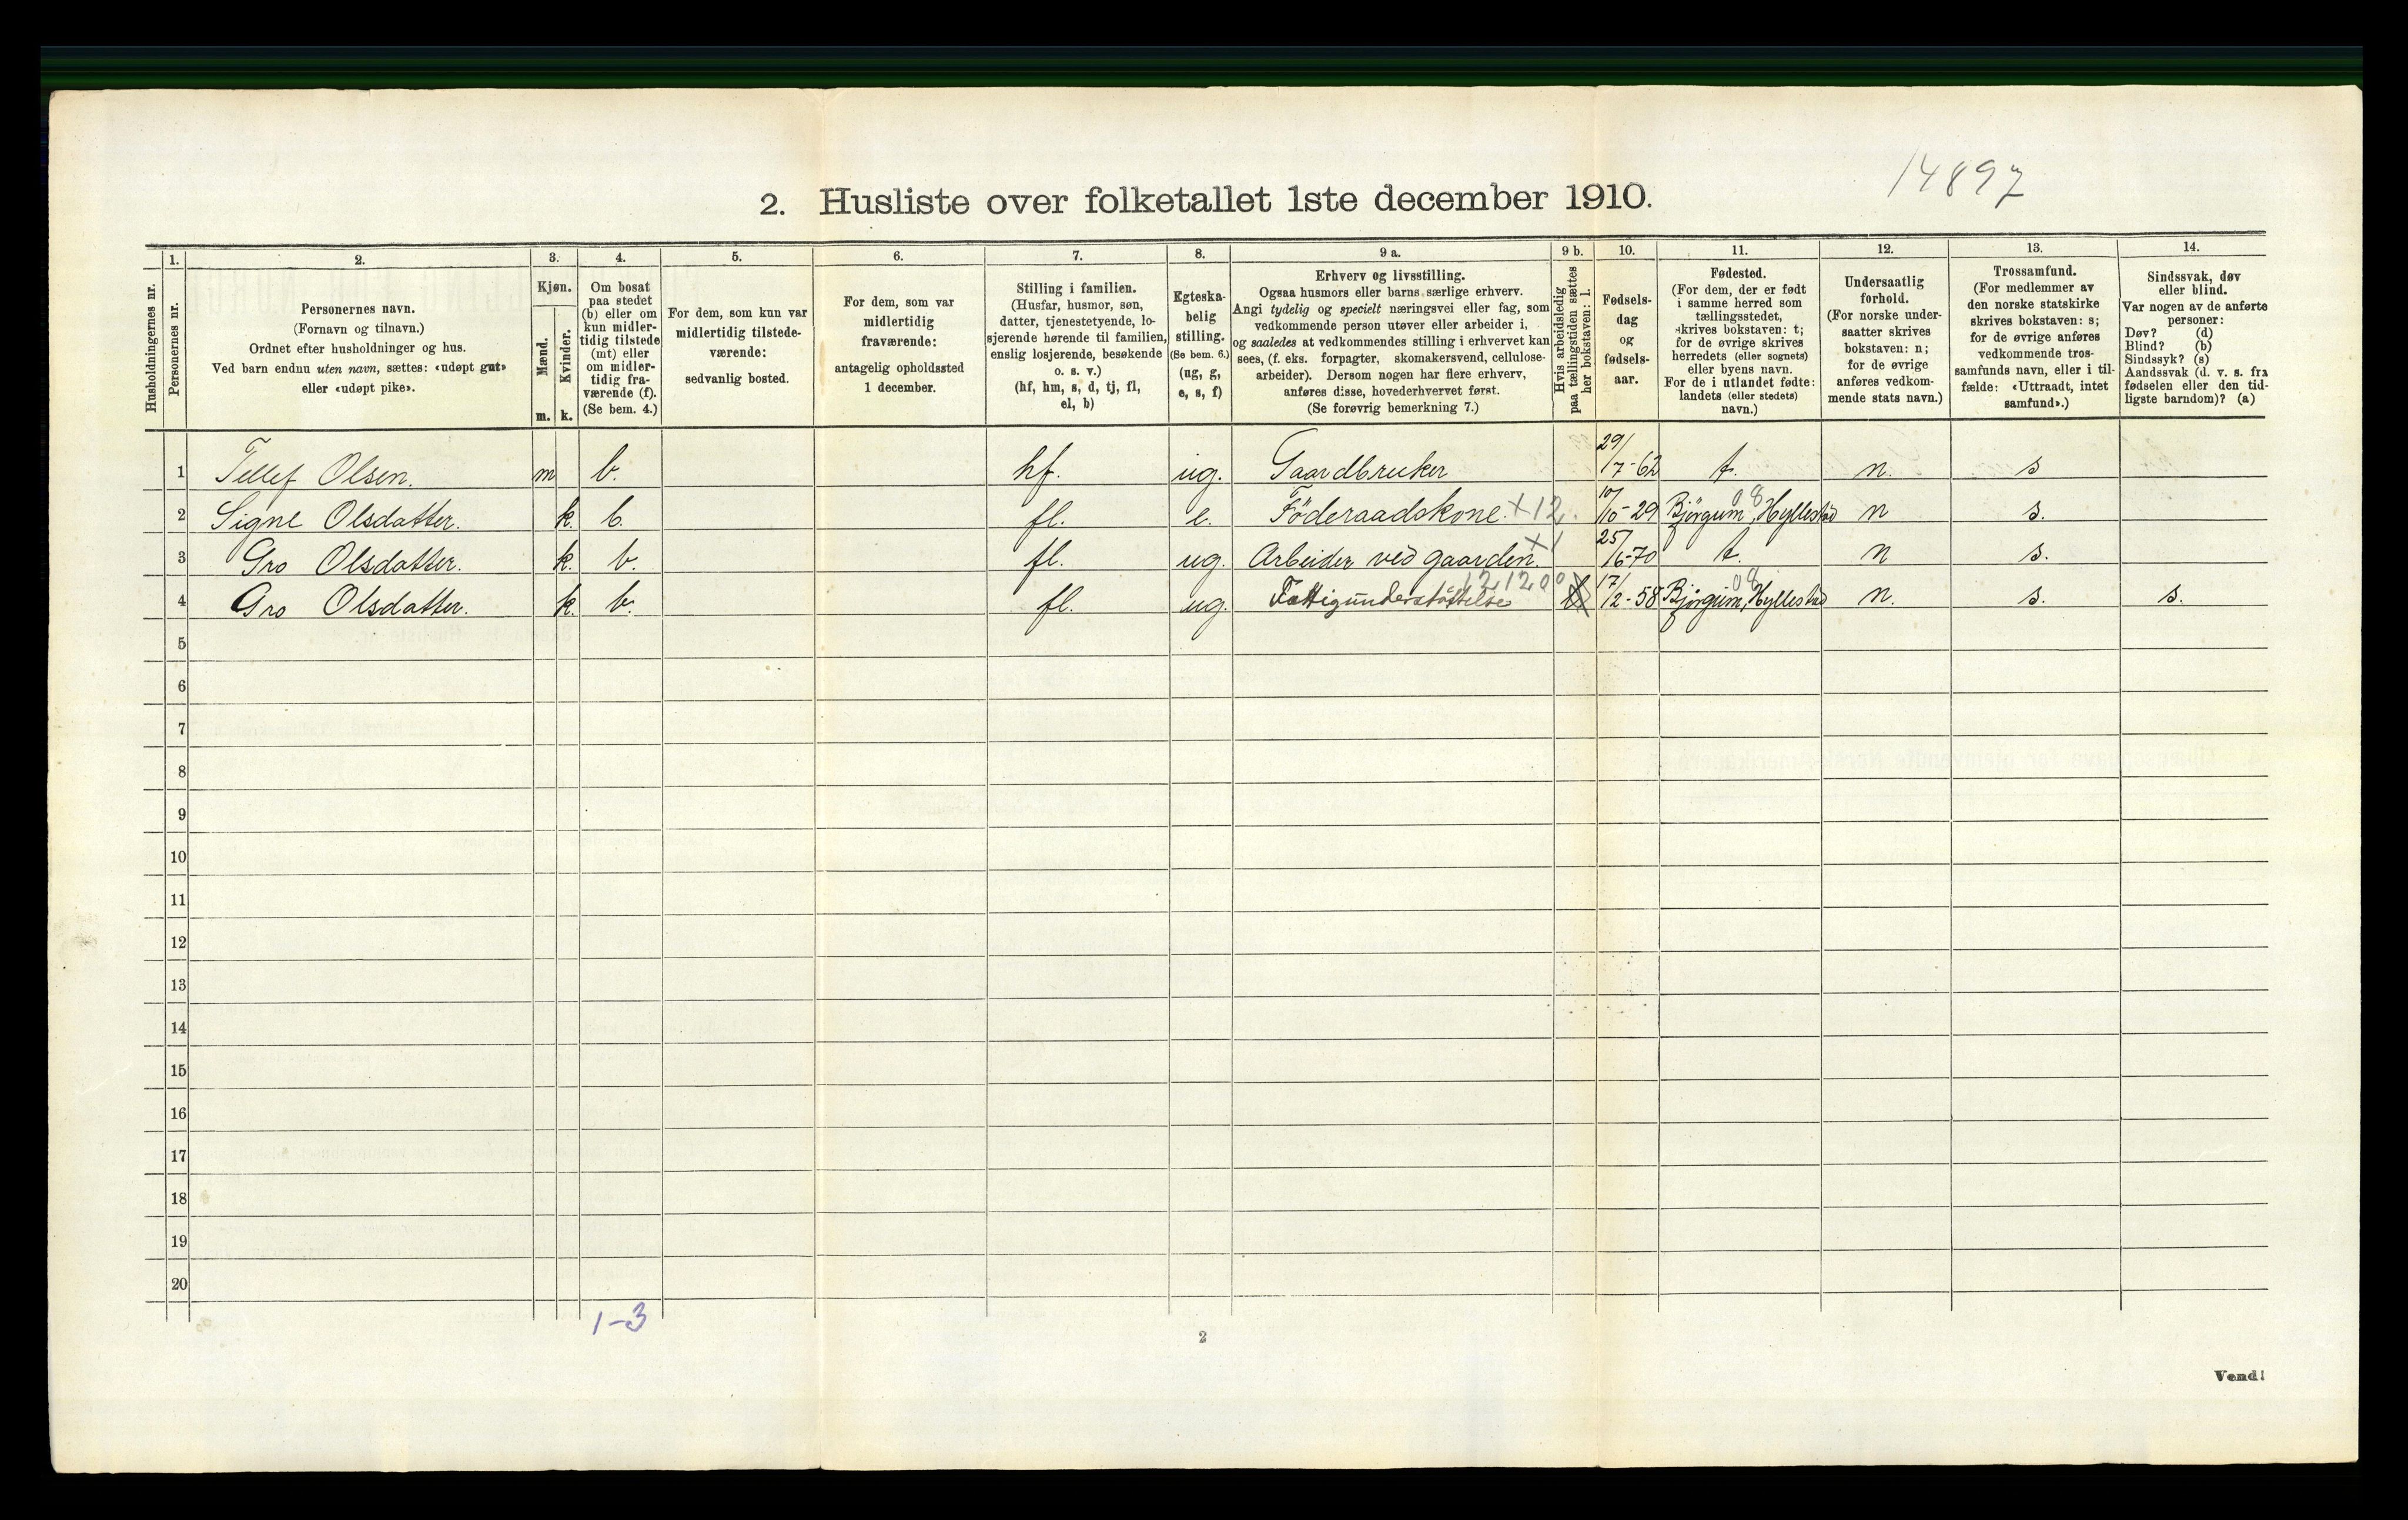 14897
2. Husliste over folketallet 1ste december 1910.
Husholdningernes nr.
1.
Personernes nr.
2.
Personernes navn.
(Fornavn og tilnavn.)
Ordnet efter husholdninger og hus.
Ved barn endnu uten navn, sættes: «udøpt gut»
eller «udøpt pike».
3.
Kjøn.
Mænd.
m.
Kvinder.
k.
4.
Om bosat
paa stedet
(b) eller om
kun midler-
tidig tilstede
(mt) eller
om midler-
tidig fra-
værende (f).
(Se bem. 4.)
5.
For dem, som kun var
midlertidig tilstede-
værende:
sedvanlig bosted.
6.
For dem, som var
midlertidig
fraværende:
antagelig opholdssted
1 december.
7.
Stilling i familien.
(Husfar, husmor, søn,
datter, tjenestetyende, lo-
sjerende hørende til familien,
enslig losjerende, besøkende
o. s. v.)
(hf, hm, s, d, tj, fl,
el, b)
8.
Egteska-
belig
stilling.
(Se bem. 6.)
(ug, g,
e, s, f)
9 a.
Erhverv og livsstilling.
Ogsaa husmors eller barns særlige erhverv.
Angi tydelig og specielt næringsvei eller fag, som
vedkommende person utøver eller arbeider i,
og saaledes at vedkommendes stilling i erhvervet kan
sees, (f. eks. forpagter, skomakersvend, cellulose-
arbeider). Dersom nogen har flere erhverv,
anføres disse, hovederhvervet først.
(Se forøvrig bemerkning 7.)
9 b.
Hvis arbeidsledig
paa tællingstiden sættes
her bokstaven: l.
10.
Fødsels-
dag
og
fødsels-
aar.
11.
Fødested.
(For dem, der er født
i samme herred som
tællingsstedet,
skrives bokstaven: t;
for de øvrige skrives
herredets (eller sognets)
eller byens navn.
For de i utlandet fødte:
landets (eller stedets)
navn.)
12.
Undersaatlig
forhold.
(For norske under-
saatter skrives
bokstaven: n;
for de øvrige
anføres vedkom-
mende stats navn.)
13.
Trossamfund.
(For medlemmer av
den norske statskirke
skrives bokstaven: s;
for de øvrige anføres
vedkommende tros-
samfunds navn, eller i til-
fælde: «Uttraadt, intet
samfund».)
14.
Sindssvak, døv
eller blind.
Var nogen av de anførte
personer:
Døv? (d)
Blind? (b)
Sindssyk? (s)
Aandssvak (d. v. s. fra
fødselen eller den tid-
ligste barndom)? (a)
1 Tellef Olsen. m b. hf. ug. Gaardbruker 29/7-62 t. n. s
2 Signe Olsdatter. k. b. fl. e. Föderaadskone. x12. 10/10-29 Bjørgum, Hyllestad 08 n s.
3 Gro Olsdatter. k. b. fl. ug. Arbeider ved gaarden. x1 25/6-70 t. n s.
4 Gro Olsdatter. k. b. fl. ug. Fattigunderstøttelse 121200 17/2-58 Bjørgum, Hyllestad 08 n. s. s.
5
6
7
8
9
10
11
12
13
14
15
16
17
18
19
20
1-3
2
Vend!